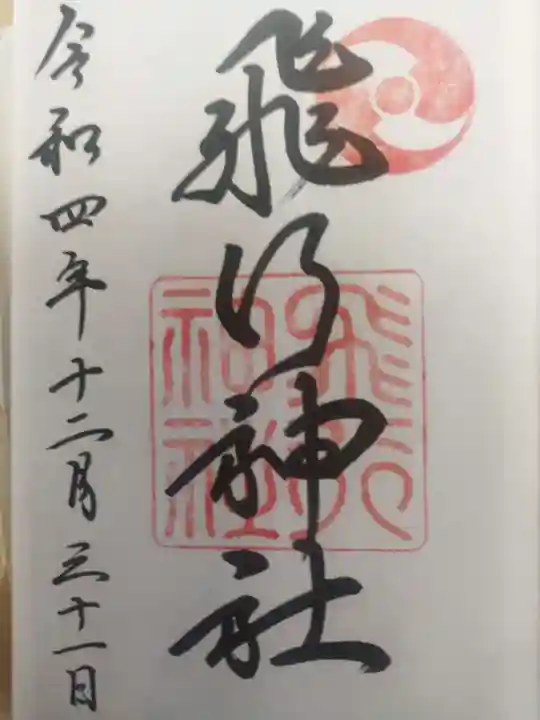 飛行神社
飛行
神社
令和四年十二月三十一日